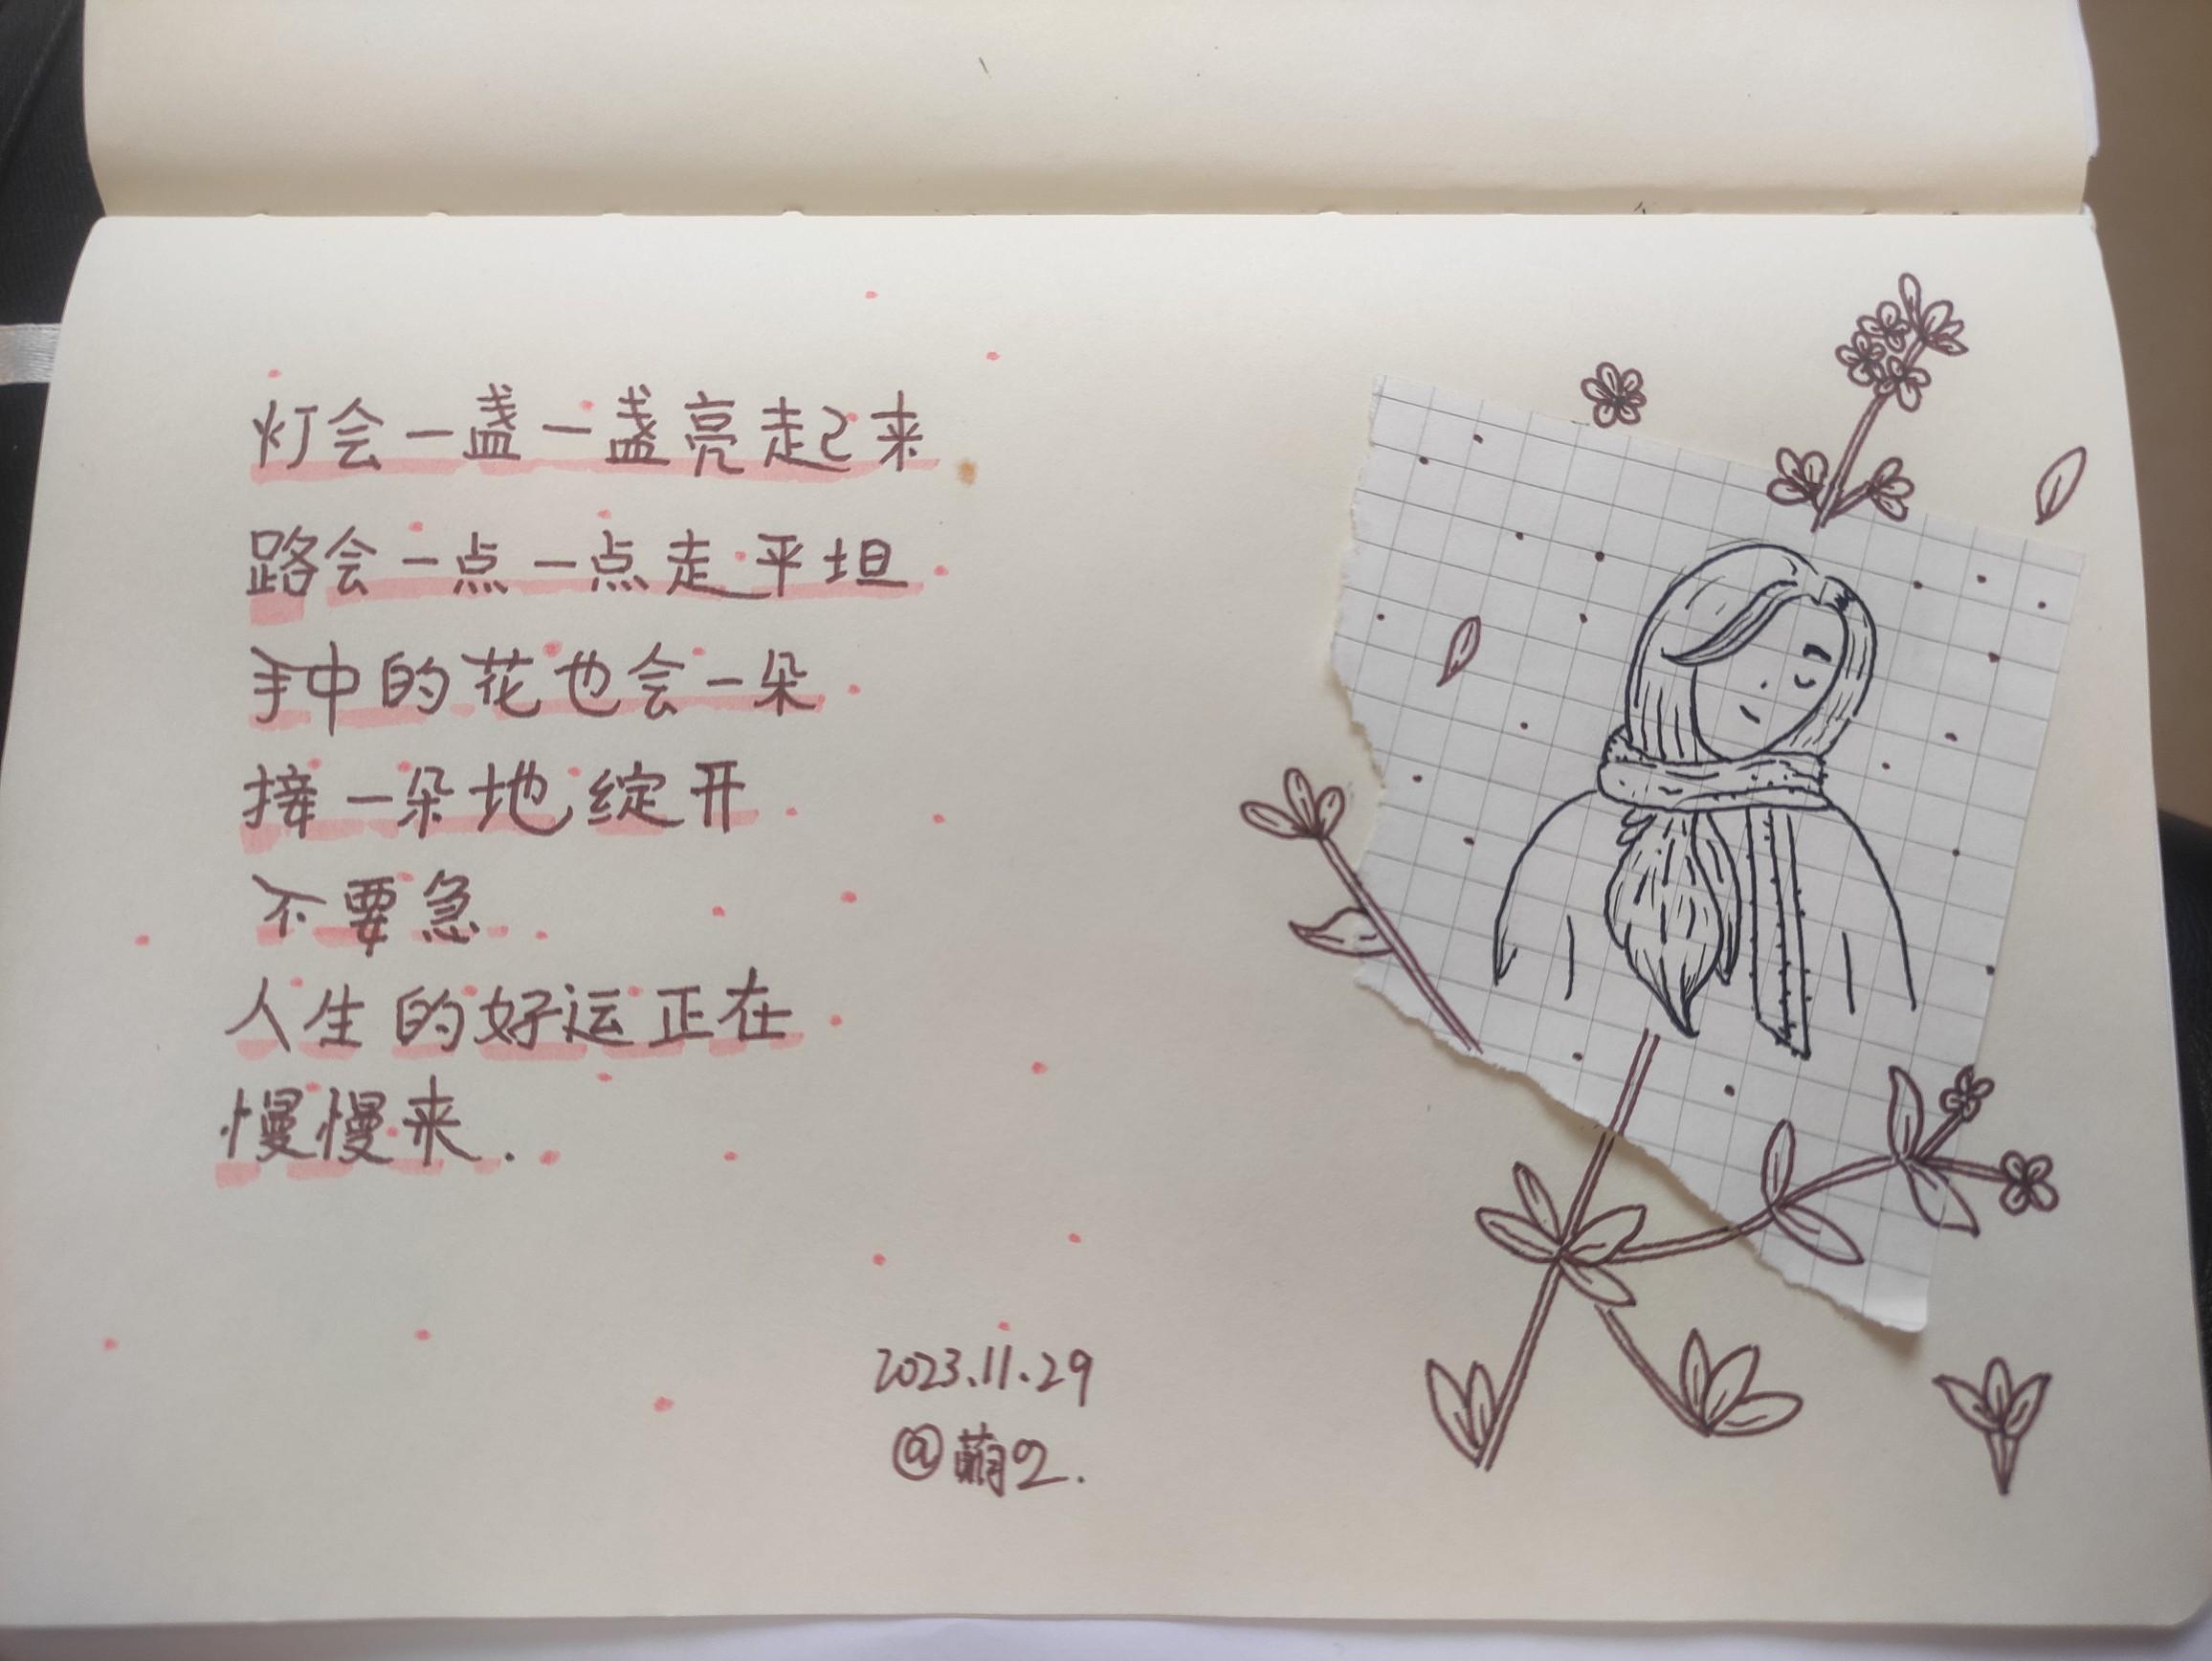 灯会一盏一盏亮起来
路会一点一点走平坦
手中的花也会一朵
接一朵地绽开
不要急
人生的好运正在
慢慢来.
2023.11.29
@萌2.